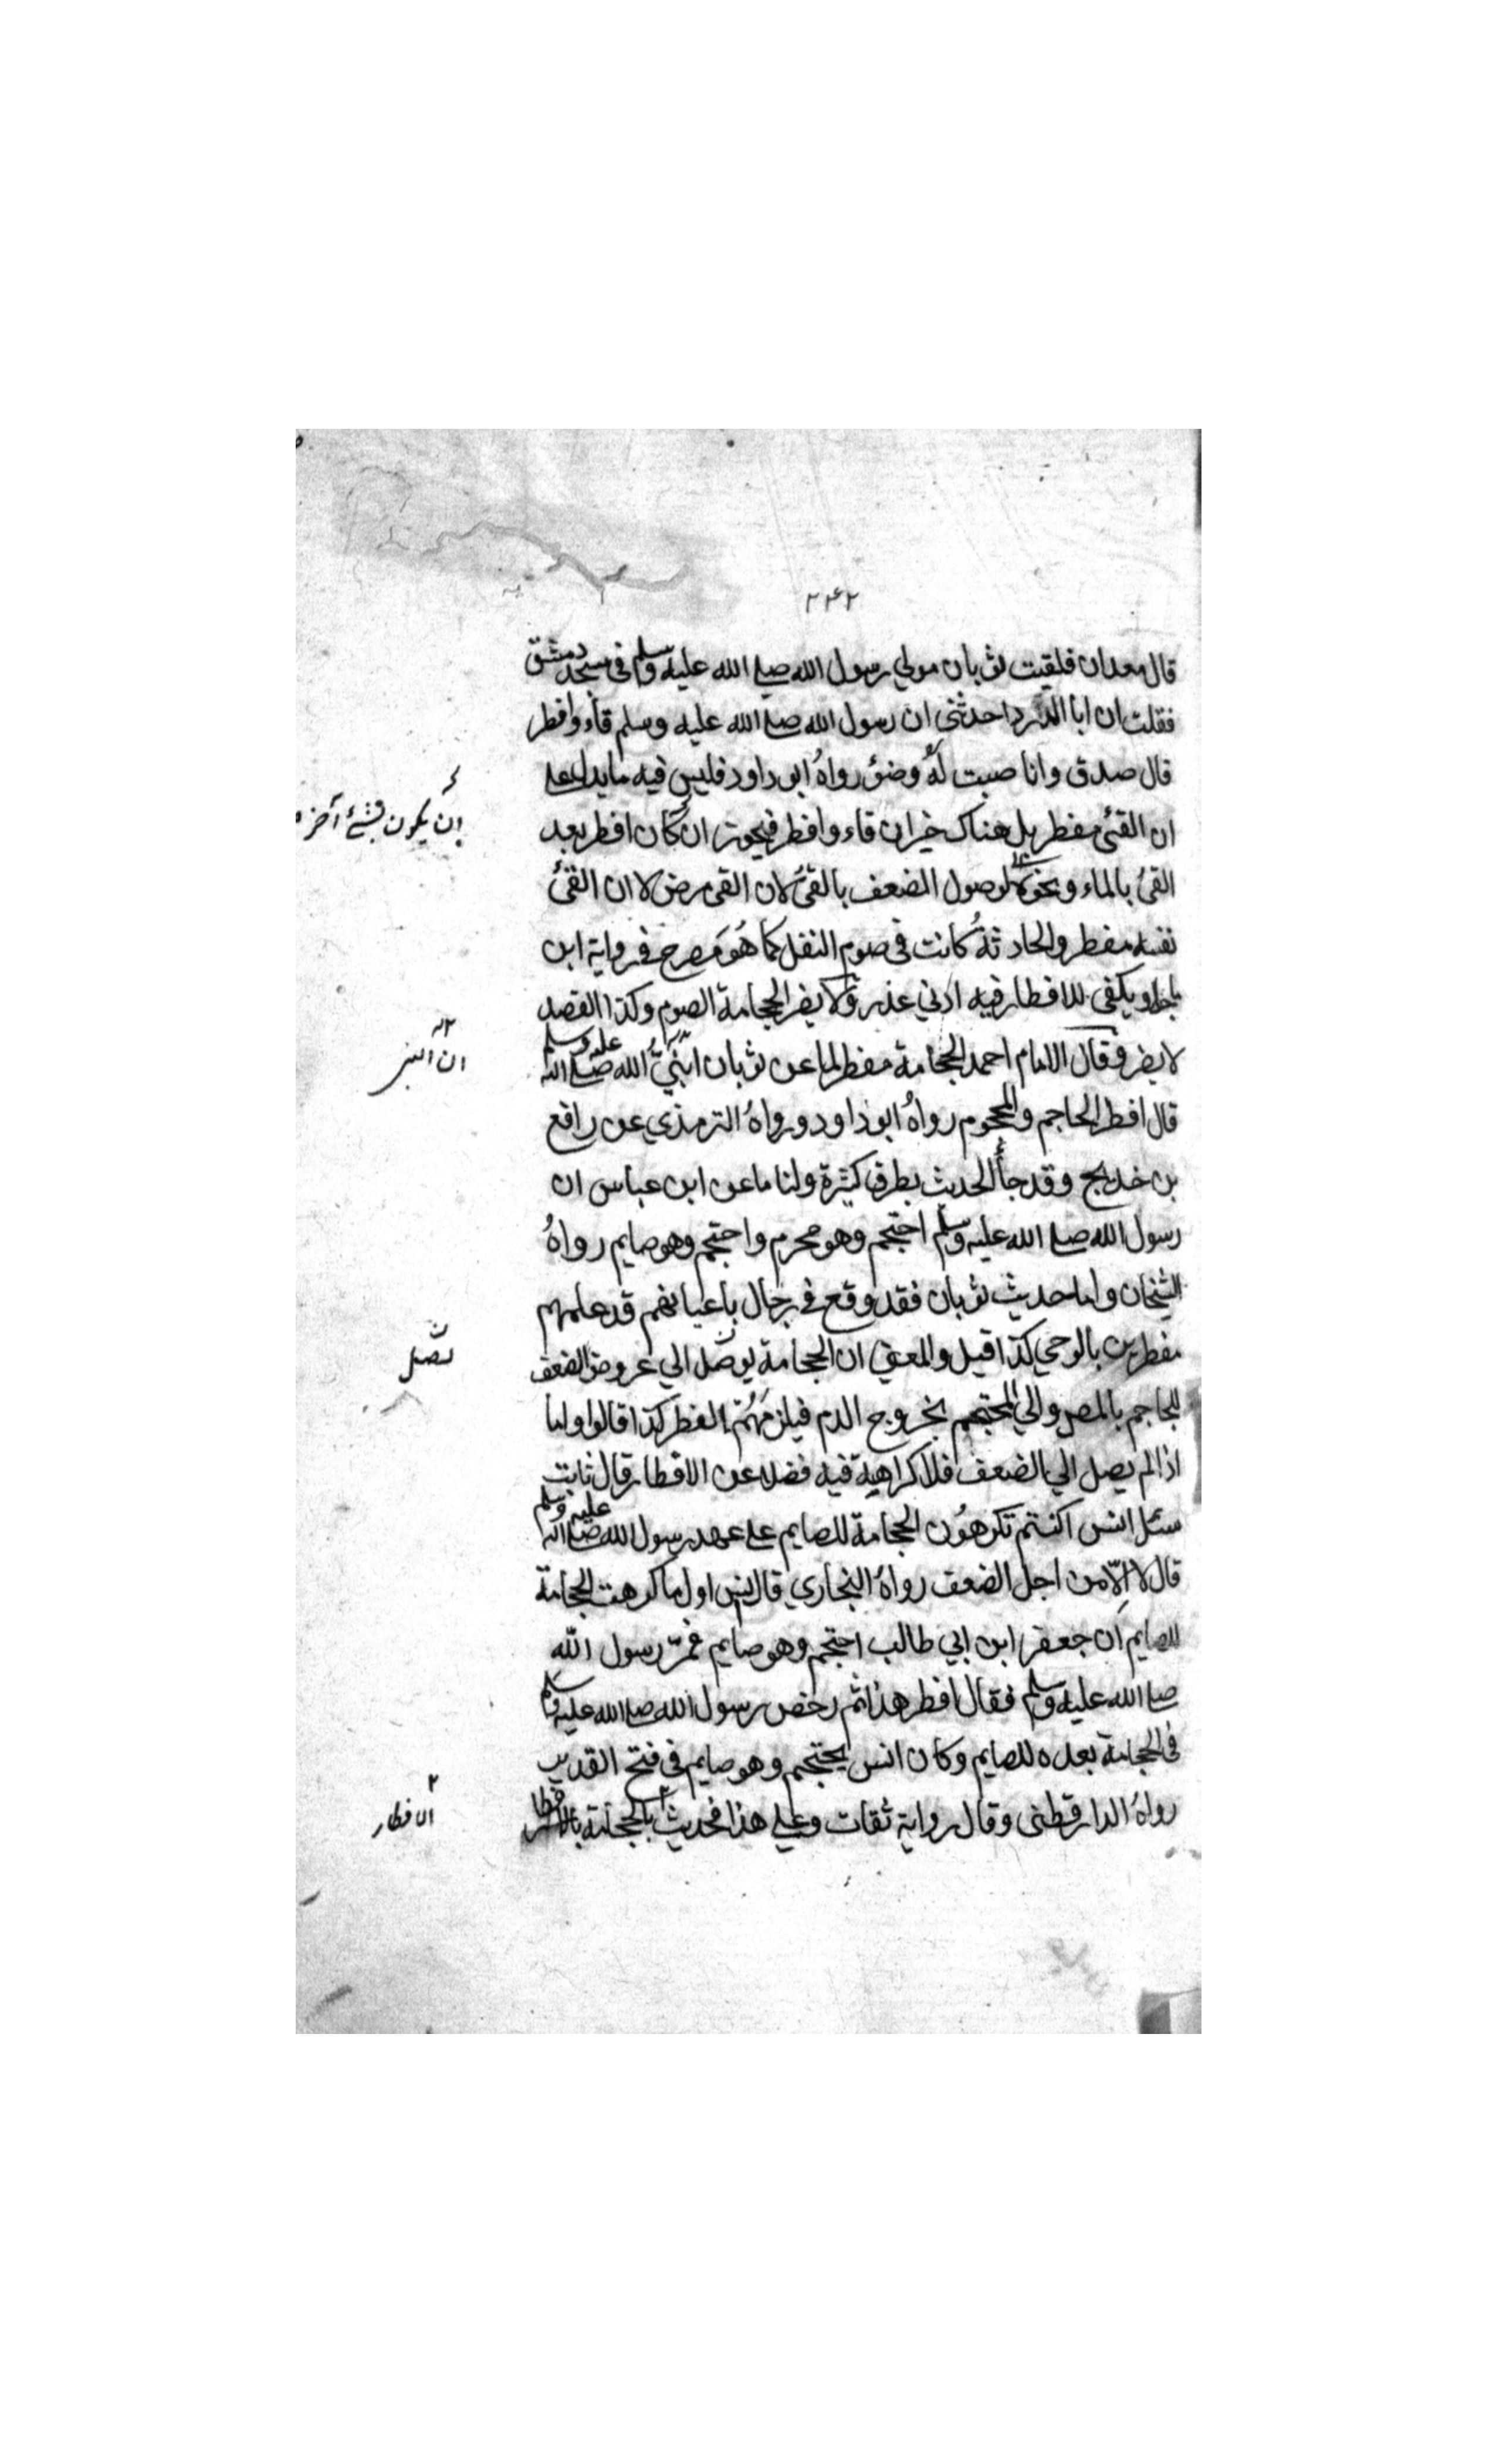 ۲۴۲
قال معدان فلقيت ثوبان مولي رسول الله صلے الله عليه وسلم فى مسجد دمشق
فقلت ان ابا الدرداحدثنى ان رسول الله صلے الله عليه وسلم قاء وافطر
قال صدق وانا صببت لهُ وضؤ رواهُ ابو داود فليس فيه ما يدل على
ان القئ مفطر بل هناك خبر ان قاء وافطر فيجوز ان كان افطر بعد
ان يكون بشئ آخر
القئ بالماء ونحوه لوصول الضعف بالقئ لان القى مرض لا ان القئ
نفسه مفطر والحادثة كانت فى صوم النفل كما هُوَ مصرح فے رواية ابن
ماجه ويكفى للافطار فيه ادني عذر ولا يضر الحجامة الصوم وكذا الفصد
لا يضر وقال الامام احمد الحجامة مفطر لما عن ثوبان نبيُّ الله صلے الله عليه وسلم
ان النبى
قال افطر الحاجم والمحجوم رواهُ ابو داود ورواهُ الترمذي عن رافع
بن خديج وقد جأ الحديث بطرق كثيرة ولنا ما عن ابن عباس ان
رسول الله صلے الله عليه وسلم احتجم وهو محرم واحتجم وهو صايم رواهُ
الشيخان واما حديث ثوبان فقد وقع فے رجال باعيانهم قد علمهم
مفطرين بالوحي كذا قيل والمعنے ان الحجامة يوصل الي عروض الضعف
تصل
للحاجم بالمص والي المحتجم بخروج الدم فيلزمهم الفطر كذا قالوا واما
اذا لم يصل الي الضعف فلا كراهية فيه فضلا عن الافطار قال ثابت
سئل انس اكنتم تكرهُون الحجامة للصايم على عهد رسول الله صلے الله عليه وسلم
قال لا اِلّا من اجل الضعف رواهُ البخاري قال انس اول ما كرهت الحجامة
للصايم ان جعفر ابن ابي طالب احتجم وهو صايم فمرّ رسول الله
صلے الله عليه وسلم فقال افطر هذا ثم رخص رسول الله صلے الله عليه وسلم
فى الحجامة بعده للصايم وكان انس يحتجم وهو صايم فى فتح القدير
رواهُ الدارقطنى وقال رواية ثقات وعلي هذا فحديث بالحجامة
الافطار